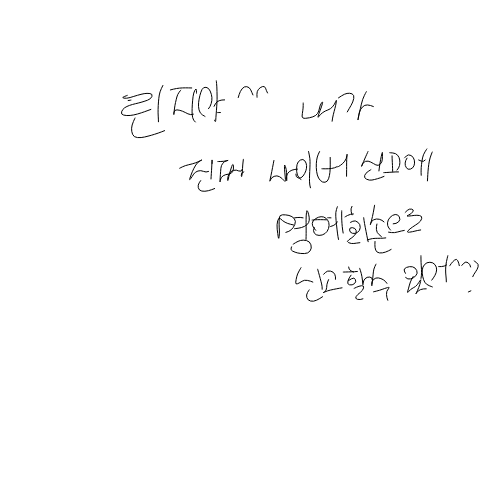 린지야^^ 내가
진짜 사이버 신고에
명예회손으로
신고할수 있어^^?